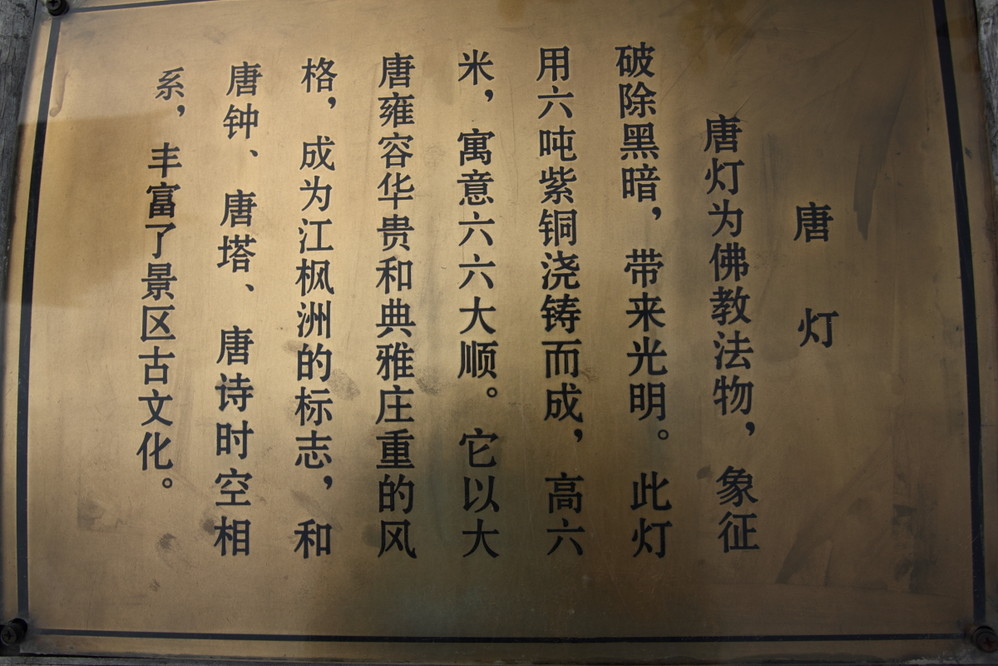 唐灯
唐灯为佛教法物，象征
破除黑暗，带来光明。此灯
用六吨紫铜浇铸而成，高六
米，寓意六六大顺。它以大
唐雍容华贵和典雅庄重的风
格，成为江枫洲的标志，和
唐钟、唐塔、唐诗时空相
系，丰富了景区古文化。